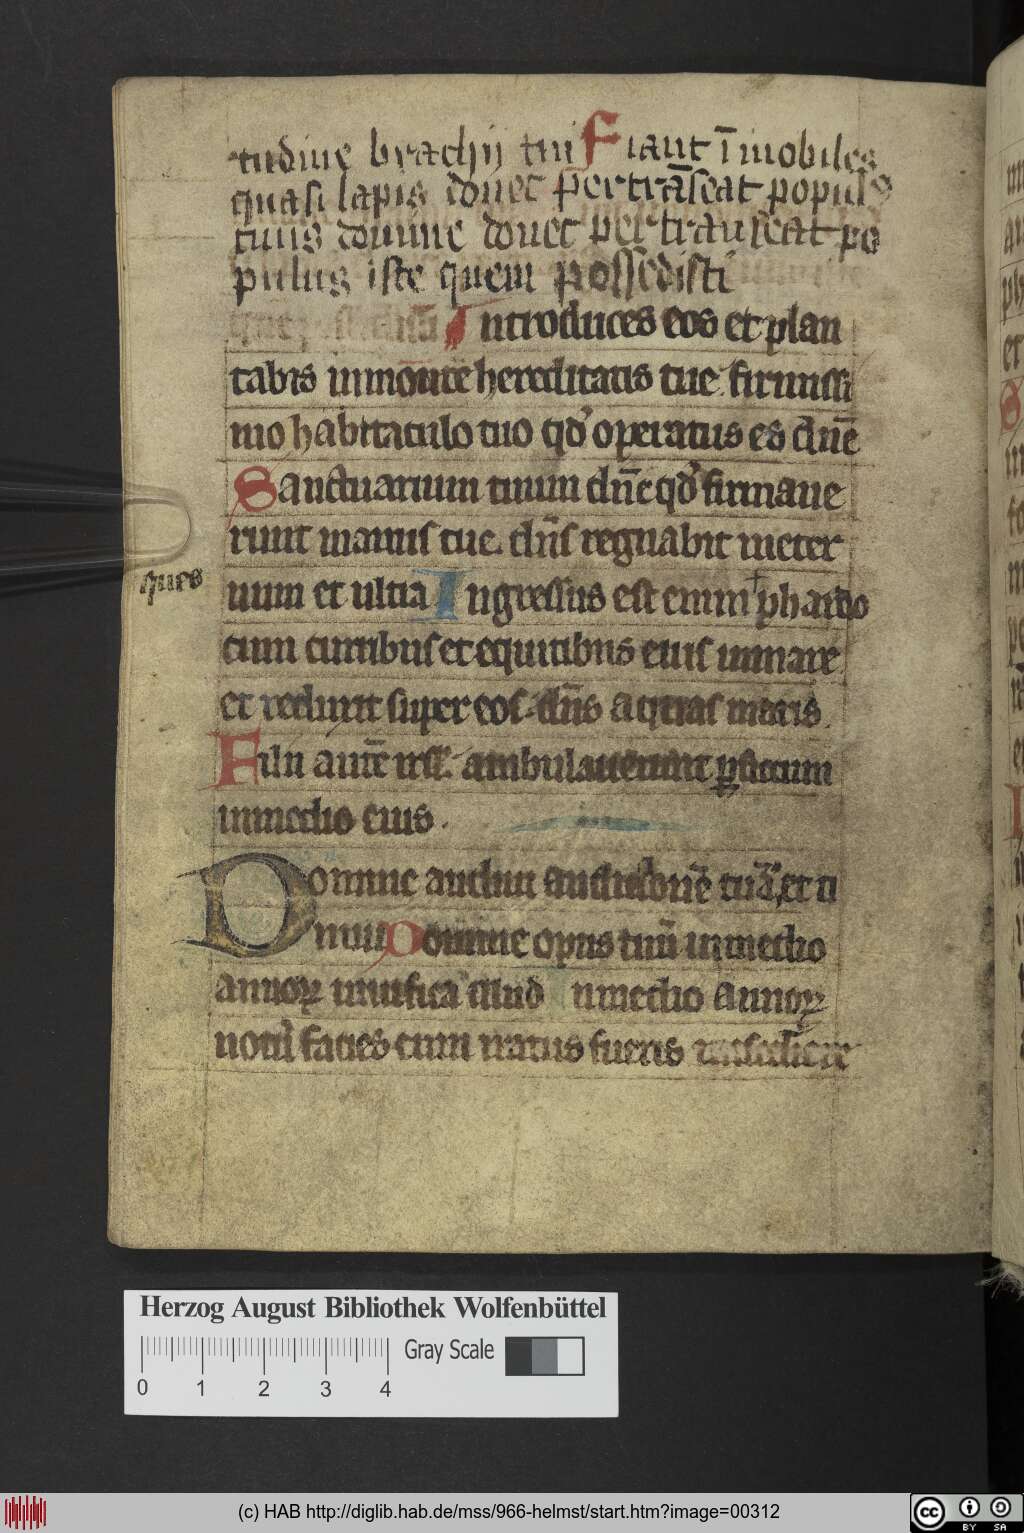 tudine brachij tui Fiant īmobiles
quasi lapis donec pertrāseat populꝰ
tuus domine donec pertranseat po
pulus iste quem possedisti
Introduces eos et plan
tabis inmonte hereditatis tue firmissi
mo habitaculo tuo qd' operatus es dn̄e
Sanctuarium tuum dn̄e qd' firmaue
runt manus tue. dn̄s regnabit ineter
num et ultra Ingressus est enim pharao
ques
cum curribus et equitibus eius inmare
et reduxit super eos dn̄s aquas maris.
Filii autē isrl̄ ambulauerunt ꝑ siccum
inmedio eius.
Domine audiui auditionē tuā et ti
mui Domine opus tuū inmedio
annoꝝ uiuifica illud Inmedio annoꝝ
notū facies cum iratus fueris misericordie
Herzog August Bibliothek Wolfenbüttel
Gray Scale
0 1 2 3 4
(c) HAB http://diglib.hab.de/mss/966-helmst/start.htm?image=00312
cc BY SA